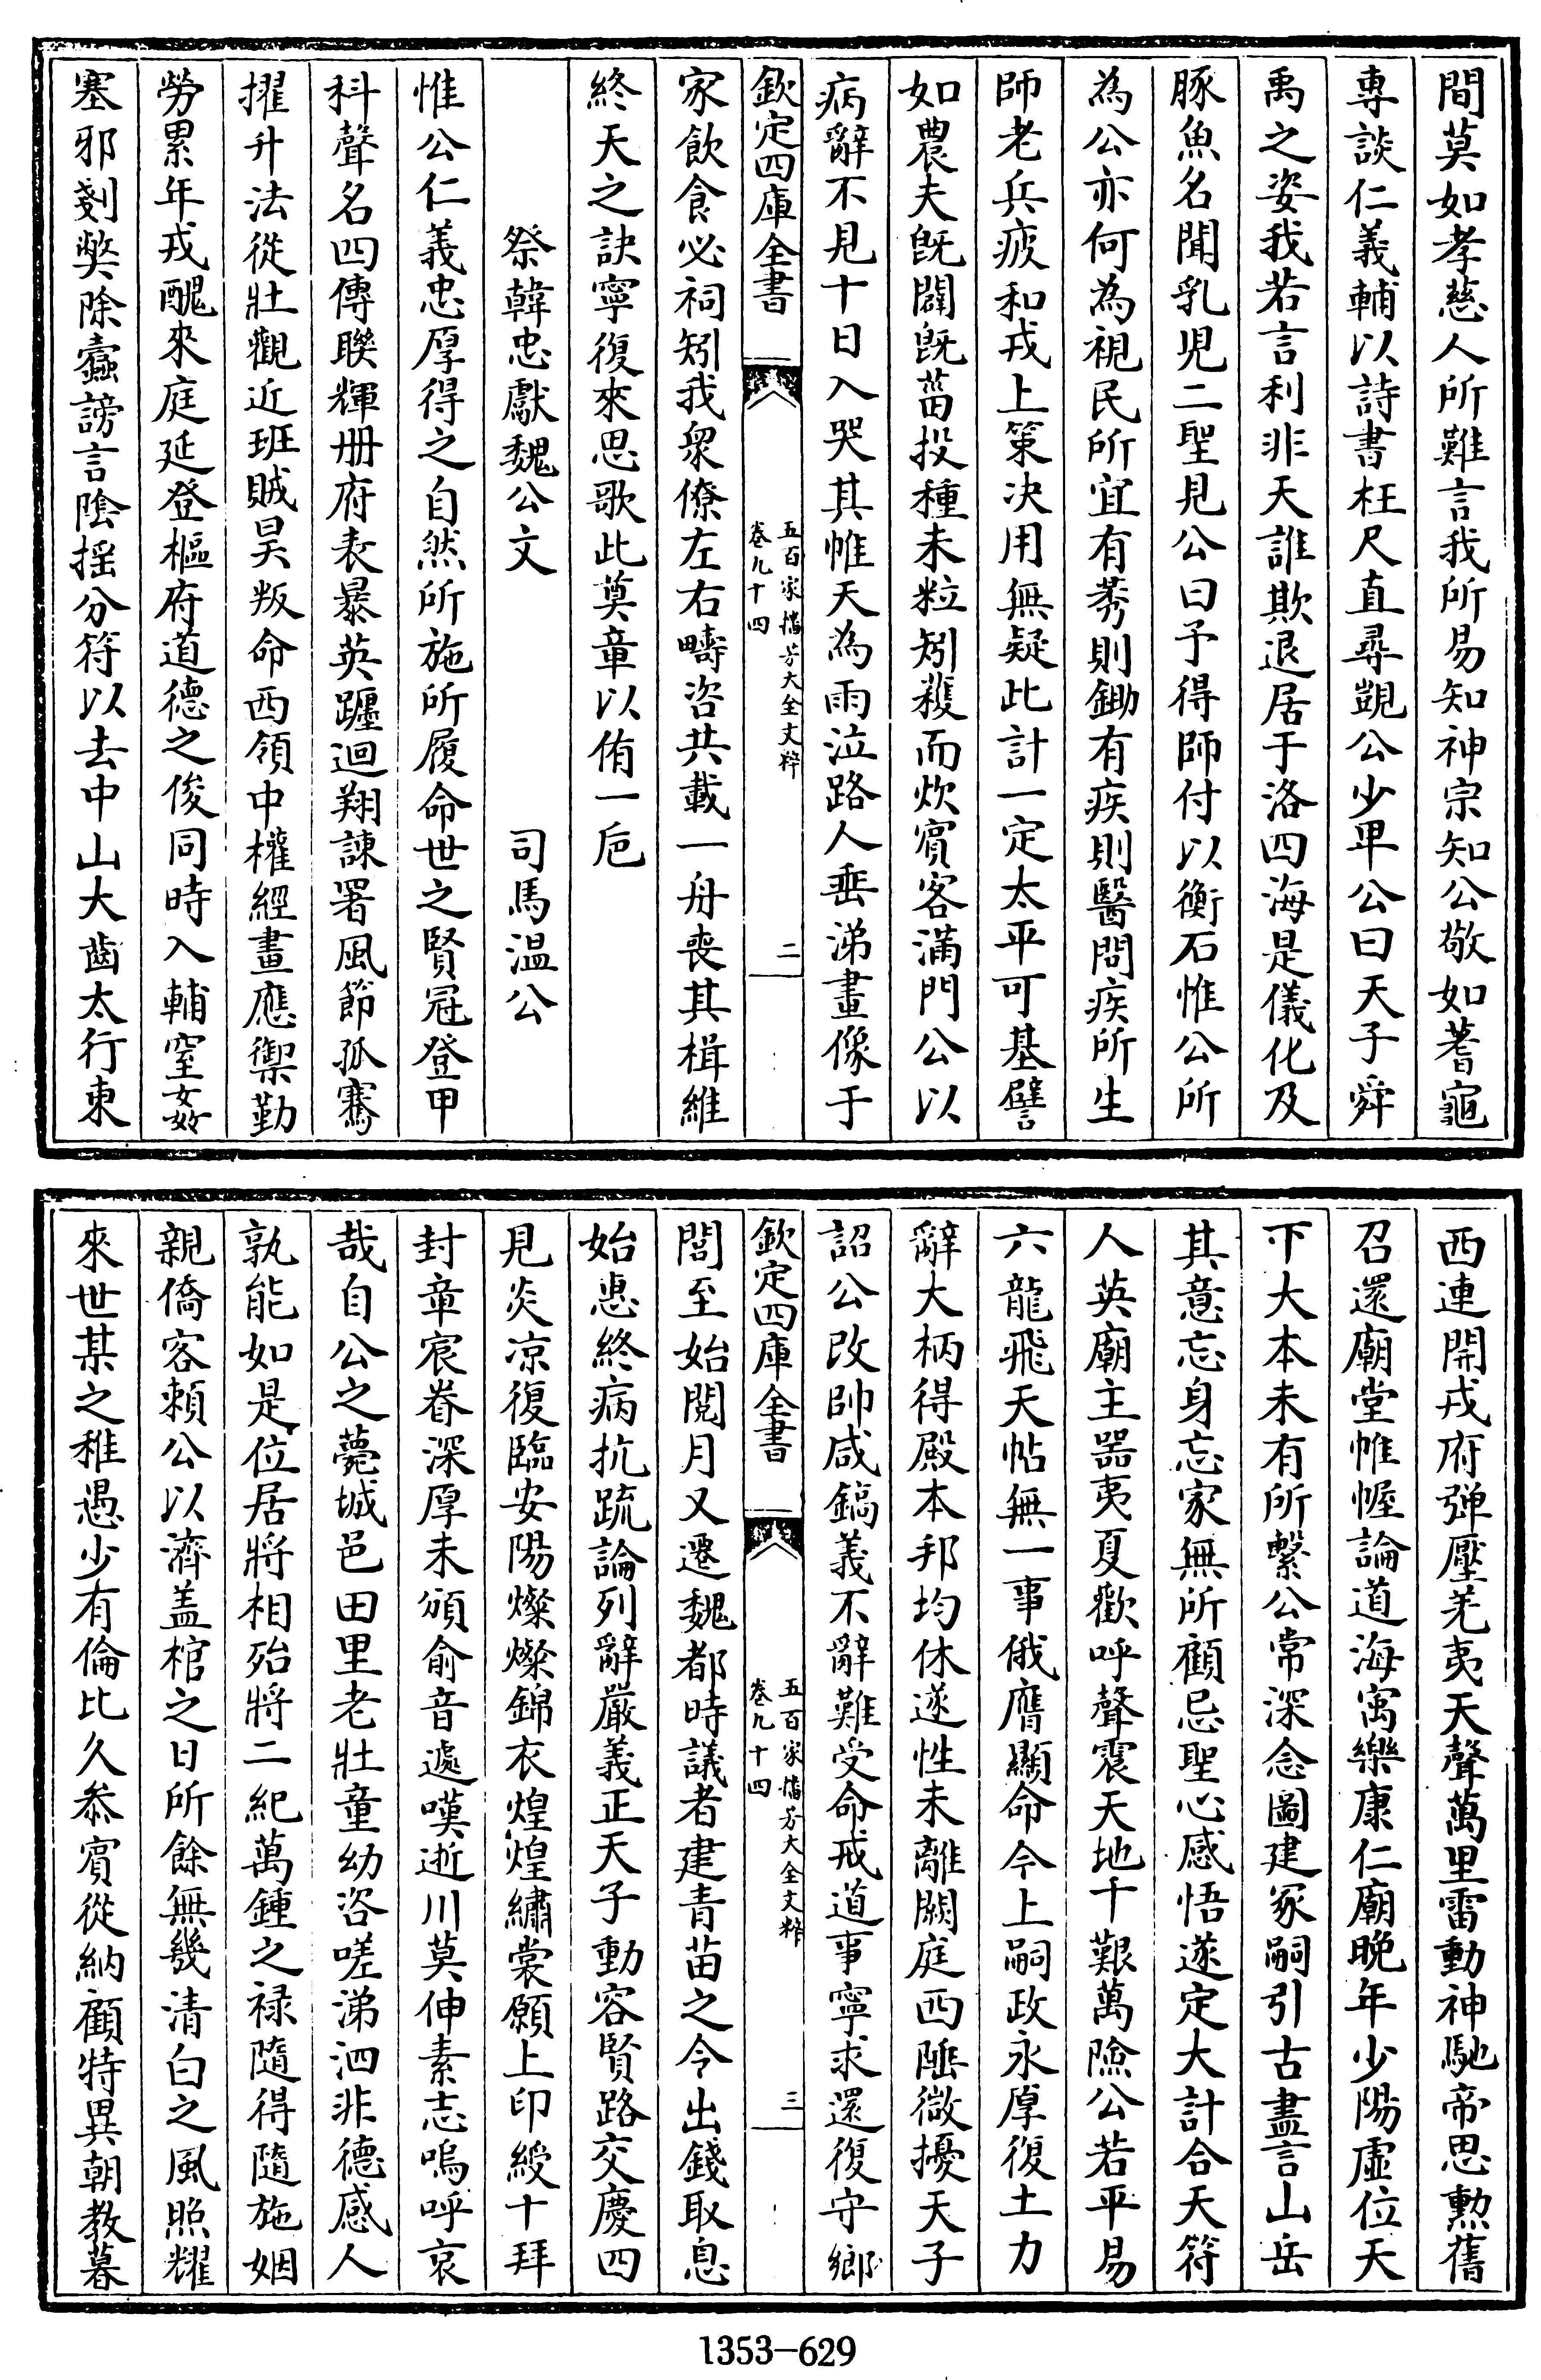 間莫如孝慈人所難言我所易知神宗知公敬如蓍龜
專談仁義輔以詩書枉尺直尋覬公少卑公曰天子舜
禹之姿我若言利非天誰欺退居于洛四海是儀化及
豚魚名聞乳兒二聖見公曰予得師付以衡石惟公所
為公亦何為視民所宜有莠則鋤有疾則醫問疾所生
師老兵疲和戎上策決用無疑此計一定太平可基譬
如農夫既闢既菑投種未粒矧穫而炊賓客滿門公以
病辭不見十日入哭其帷天為雨泣路人垂涕畫像于
欽定四庫全書
五百家播芳大全文粹
卷九十四
二
家飲食必祠矧我衆僚左右疇咨共載一舟喪其楫維
終天之訣寧復來思歌此奠章以侑一巵
祭韓忠獻魏公文 司馬温公
惟公仁義忠厚得之自然所施所履命世之賢冠登甲
科聲名四傳聨輝册府表暴英躔迴翔諫署風節孤騫
擢升法從壯觀近班賊昊叛命西領中權經畫應禦勤
勞累年戎醜來庭延登樞府道德之俊同時入輔窒姦
塞邪剗獘除蠧謗言陰揺分符以去中山大齒太行東
西連開戎府彈壓羌夷天聲萬里雷動神馳帝思勲舊
召還廟堂帷幄論道海寓樂康仁廟晚年少陽虛位天
下大本未有所繫公常深念圖建冢嗣引古盡言山岳
其意忘身忘家無所顧忌聖心感悟遂定大計合天符
人英廟主器夷夏歡呼聲震天地千艱萬險公若平易
六龍飛天帖無一事俄膺顯命今上嗣政永厚復土力
辭大柄得殿本邦均休遂性未離闕庭西陲微擾天子
詔公改帥咸鎬義不辭難受命戒道事寧求還復守鄉
欽定四庫全書
五百家播芳大全文粹
卷九十四
三
閭至始閱月又遷魏都時議者建青苗之令出錢取息
始恵終病抗疏論列辭嚴義正天子動容賢路交慶四
見炎凉復臨安陽燦燦錦衣煌煌繡裳願上印綬十拜
封章宸眷深厚未頒俞音遽嘆逝川莫伸素志嗚呼哀
哉自公之薨城邑田里老壯童幼咨嗟涕泗非德感人
孰能如是位居將相殆將二紀萬鍾之禄隨得隨施姻
親僑客頼公以濟盖棺之日所餘無幾清白之風照耀
來世某之稚愚少有倫比久叅賓從納顧特異朝教暮
1353-629